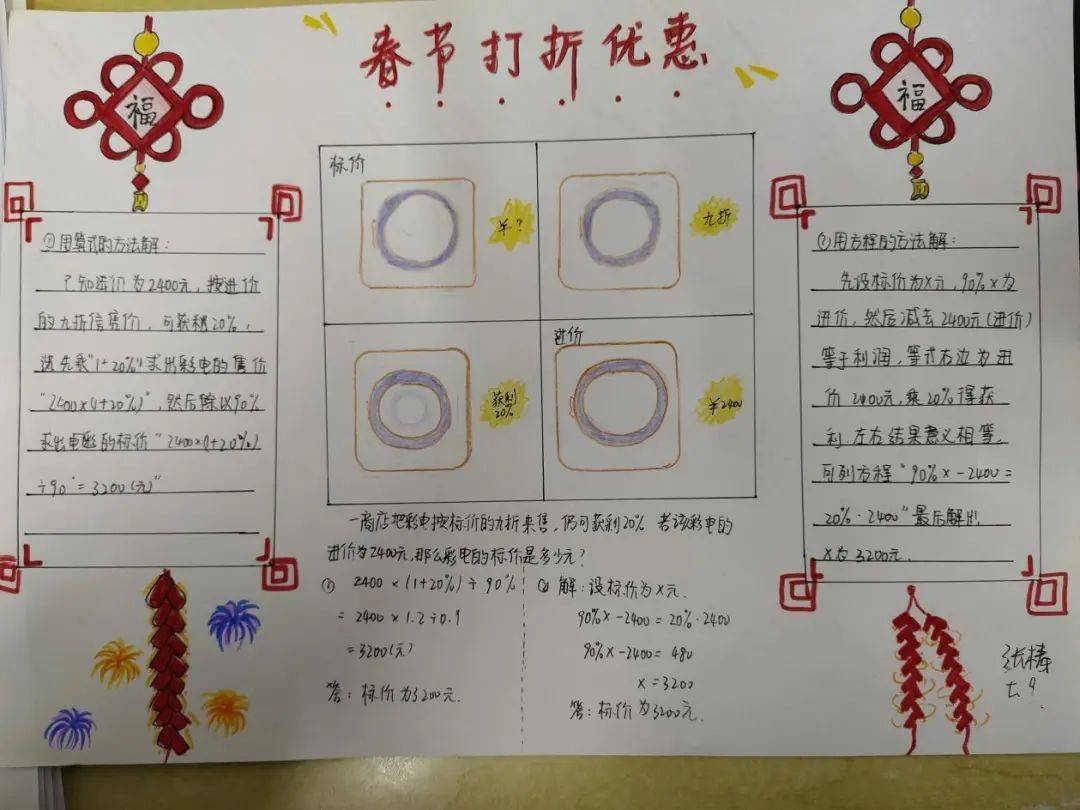 春节打折优惠
福
福
标价
¥?
九折
获利
20%
进价
¥2400
①用算式的方法解：
已知进价为2400元，按进价
的九折信售价，可获利20%，
先乘"1+20%"求出彩电的售价
"2400×(1+20%)"，然后除以90%
求出电彩的标价"2400×(1+20%)
÷90°=3200(元)"
一商店把彩电按标价的九折来售，仍可获利20% 若该彩电的
进价为2400元，那么彩电的标价是多少元？
① 2400×(1+20%)÷90%
=2400×1.2÷0.9
=3200(元)
答：标价为3200元.
② 解：设标价为X元.
90%X-2400=20%·2400
90%X-2400=480
X=3200
答：标价为3200元.
用方程的方法解：
先设标价为X元，90%X为
进价，然后减去2400元(进价)
等于利润，等式右边为进
价2400元，乘20%得获
利.左右结果意义相等.
可列方程"90%X-2400=
20%·2400"最后解出
X为3200元.
张
七9